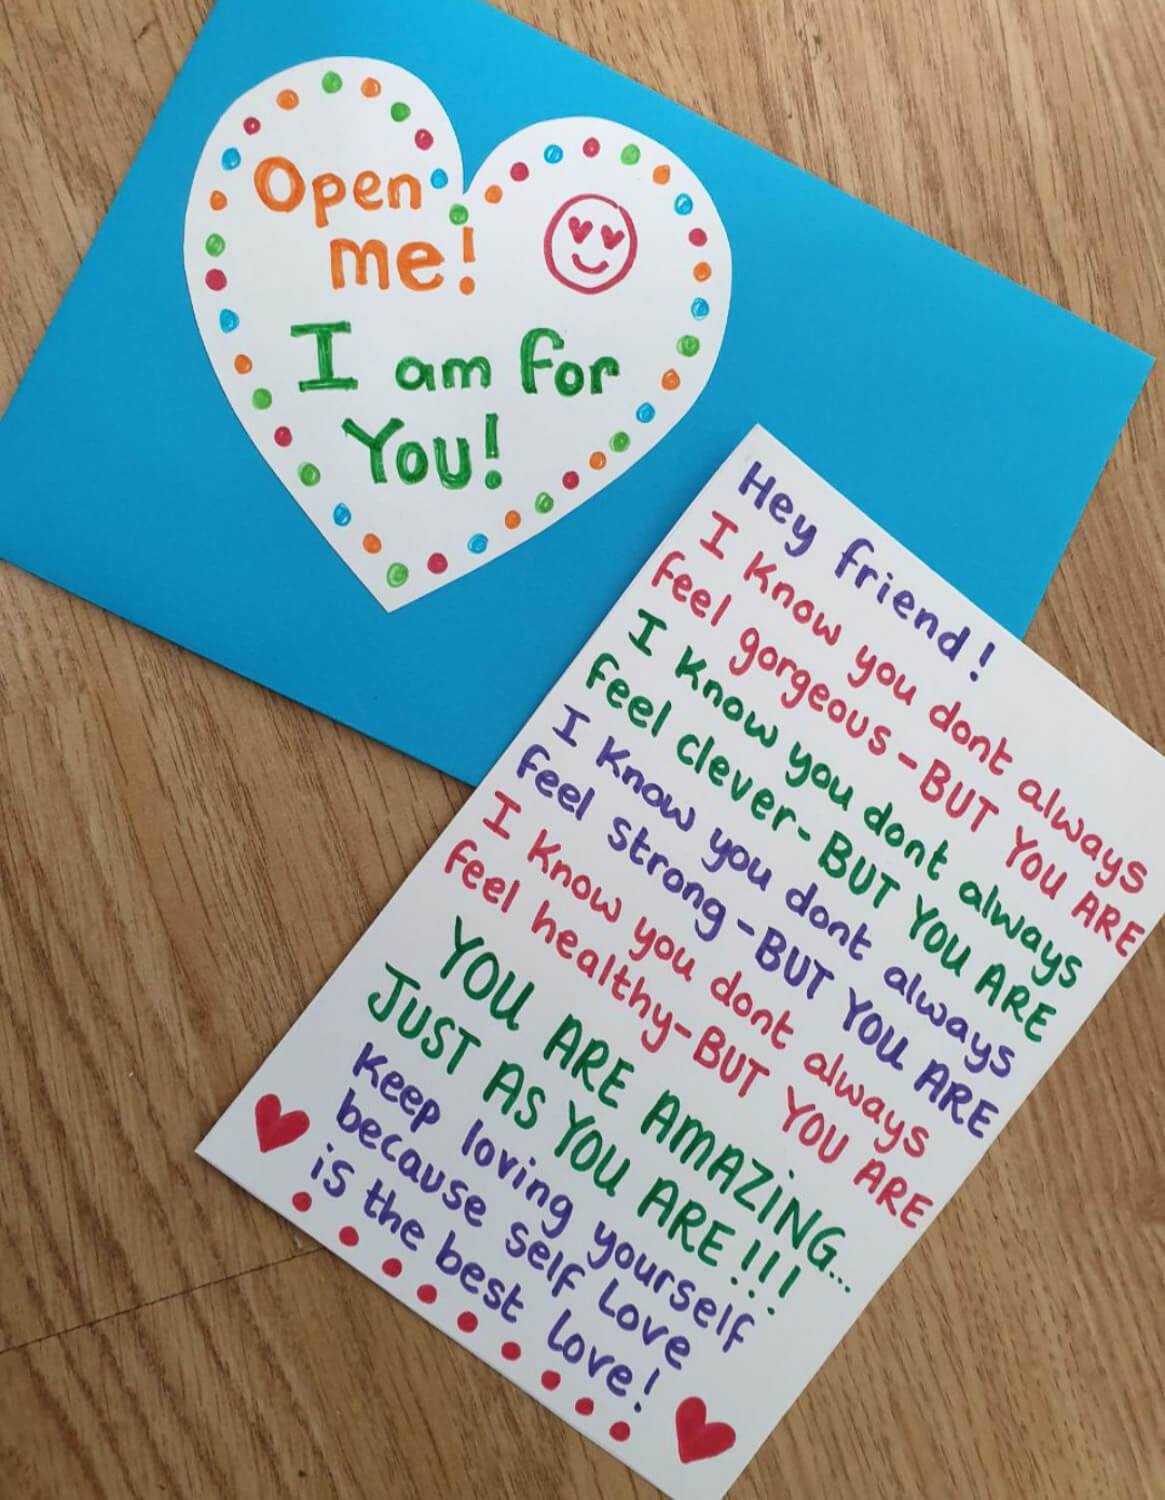 Open
me!
I am for
You!
Hey friend!
I Know you dont always
feel gorgeous - BUT YOU ARE
I Know you dont always
feel clever - BUT YOU ARE
I Know you dont always
feel strong - BUT YOU ARE
I Know you dont always
feel healthy - BUT YOU ARE
YOU ARE AMAZiNG...
JUST AS YOU ARE!!!
Keep loving yourself
because self Love
is the best Love!